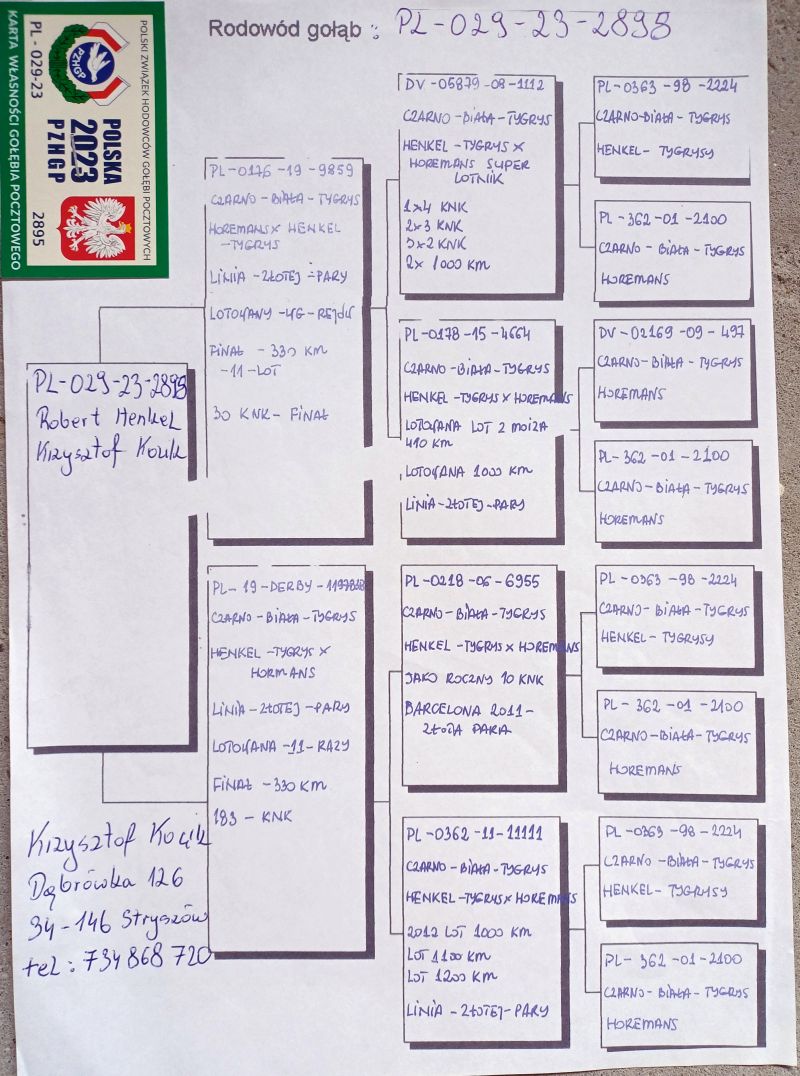 Rodowód gołąb : PL-029-23-2895
POLSKI ZWIĄZEK HODOWCÓW GOŁĘBI POCZTOWYCH
PZHGP
POLSKA
2023
PZHGP
PL - 029-23
2895
KARTA WŁASNOŚCI GOŁĘBIA POCZTOWEGO
PL-029-23-2895
Robert Henkel
Krzysztof Kocik
Krzysztof Kocik
Dąbrówka 126
34-146 Stryszów
tel: 734 868 720
PL-0176-19-9859
CZARNO-BIAŁA-TYGRYS
HOREMANS X HENKEL
-TYGRYS
LINIA-ZŁOTEJ-PARY
LOTOWANY-WG-REJDU
FINAŁ - 330 KM
-11-LOT
30 KNK-FINAŁ
PL-19-DERBY-
CZARNO-BIAŁA-TYGRYS
HENKEL-TYGRYS X
HORMANS
LINIA-ZŁOTEJ-PARY
LOTOWANA-11-RAZY
FINAŁ-330 KM
183-KNK
DV-05879-08-1112
CZARNO-BIAŁA-TYGRYS
HENKEL-TYGRYS X
HOREMANS SUPER
LOTNIK
1x4 KNK
2x3 KNK
3x2 KNK
2x 1000 KM
PL-0178-15-4664
CZARNO-BIAŁA-TYGRYS
HENKEL-TYGRYS X HOREMANS
LOTOWANA LOT 2 MOIZA
410 KM
LOTOWANA 1000 KM
LINIA-ZŁOTEJ-PARY
PL-0218-06-6955
CZARNO-BIAŁA-TYGRYS
HENKEL-TYGRYS X HOREMANS
JAKO ROCZNY 10 KNK
BARCELONA 2011-
ZŁOTA PARA
PL-0362-11-11111
CZARNO-BIAŁA-TYGRYS
HENKEL-TYGRYS X HOREMANS
2012 LOT 1000 KM
LOT 1100 KM
LOT 1200 KM
LINIA-ZŁOTEJ-PARY
PL-0363-98-2224
CZARNO-BIAŁA-TYGRYS
HENKEL-TYGRYSY
PL-362-01-2100
CZARNO-BIAŁA-TYGRYS
HOREMANS
DV-02169-09-497
CZARNO-BIAŁA-TYGRYS
HOREMANS
PL-362-01-2100
CZARNO-BIAŁA-TYGRYS
HOREMANS
PL-0363-98-2224
CZARNO-BIAŁA-TYGRYS
HENKEL-TYGRYSY
PL-362-01-2100
CZARNO-BIAŁA-TYGRYS
HOREMANS
PL-0363-98-2224
CZARNO-BIAŁA-TYGRYS
HENKEL-TYGRYSY
PL-362-01-2100
CZARNO-BIAŁA-TYGRYS
HOREMANS